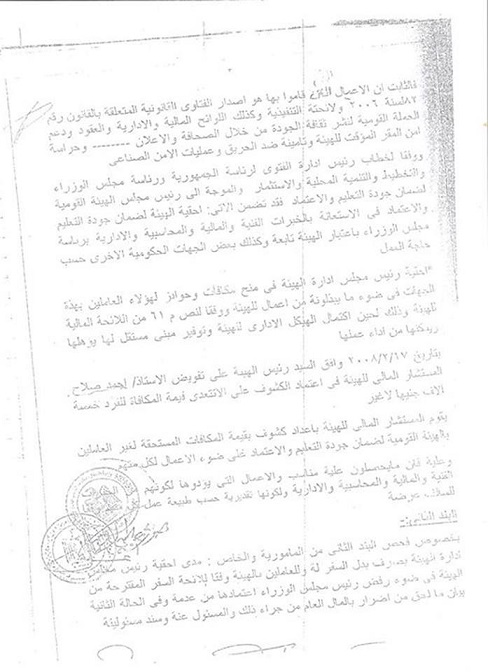 فالثابت ان الاعمال التى قاموا بها هو اصدار الفتاوى القانونية المتعلقة بالقانون رقم
٨٢ لسنة ٢٠٠٦ ولائحتة التنفيذية وكذلك اللوائح المالية والادارية والعقود ودعم
الحملة القومية لنشر ثقافة الجودة من خلال الصحافة والاعلان -------- وحراسة
امن المقر المؤقت للهيئة وتامينة ضد الحريق وعمليات الامن الصناعى
ووفقا لخطاب رئيس ادارة الفتوى لرئاسة الجمهورية ورئاسة مجلس الوزراء
والتخطيط والتنمية المحلية والاستثمار والموجة الى رئيس مجلس الهيئة القومية
لضمان جودة التعليم والاعتماد فقد تضمن الاتى: احقية الهيئة لضمان جودة التعليم
والاعتماد فى الاستعانة بالخبرات الفنية والمالية والمحاسبية والادارية برئاسة
مجلس الوزراء باعتبار الهيئة تابعة وكذلك بعض الجهات الحكومية الاخرى حسب
حاجة العمل
*احقية رئيس مجلس ادارة الهيئة فى منح مكافات وحوافز لهؤلاء العاملين بهذة
الجهات فى ضوء ما يبذلونة من اعمال للهيئة ووفقا لنص م ٦١ من اللائحة المالية
للهيئة وذلك لحين اكتمال الهيكل الادارى للهيئة وتوفير مبنى مستقل لها يؤهلها
ويمكنها من اداء عملها
بتاريخ ٢٠٠٨/٢/١٧ وافق السيد رئيس الهيئة على تفويض الاستاذ/ احمد صلاح
المستشار المالى للهيئة فى اعتماد الكشوف على الاتتعدى قيمة المكافاة للفرد خمسة
الاف جنيها لاغير
يقوم المستشار المالى للهيئة باعداد كشوف بقيمة المكافات المستحقة لغير العاملين
بالهيئة القومية لضمان جودة التعليم والاعتماد على ضوء الاعمال لكل منهم
وعلية فان مايحصلون علية مناسب والاعمال التى يؤدوها لكونهم
الفنية والمالية والمحاسبية والادارية ولكونها تقديرية حسب طبيعة عمل كل
للسالف عرضة
البند الثانى:
بخصوص فحص البند الثانى من المامورية والخاص : مدى احقية رئيس مجلس
ادارة الهيئة بصرف بدل السفر لة وللعاملين بالهيئة وفقا للائحة السفر المقترحة من
الهيئة فى ضوء رفض رئيس مجلس الوزراء اعتمادها من عدمة وفى الحالة الثانية
بيان ما لحق من اضرار بالمال العام من جراء ذلك والمسئول عنة وسند مسئوليتة